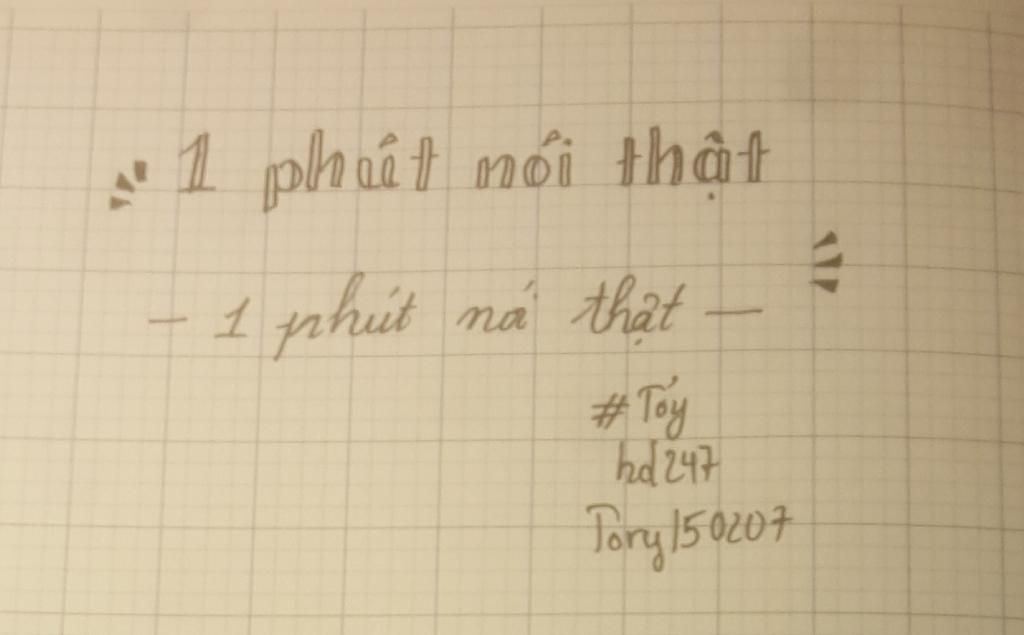 1 phút nói thật
- 1 phút nói thật -
#Tóy
hd247
Tory150207